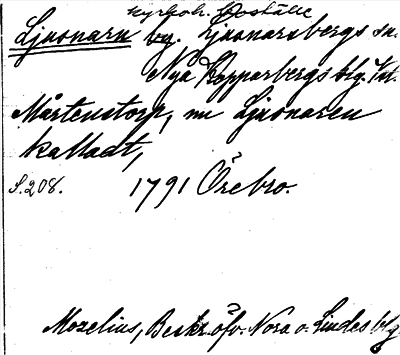 kyrkoh. Boställe
Ljusnaren by. Ljusnarsbergs sn.
Nya Kopparbergs blg. Vst.
Mårtenstorp, nu Ljusnaren
kalladt,
S. 208. 1791 Örebro.
Mozelius, Beskr. öfv. Nora o. Lindes blg